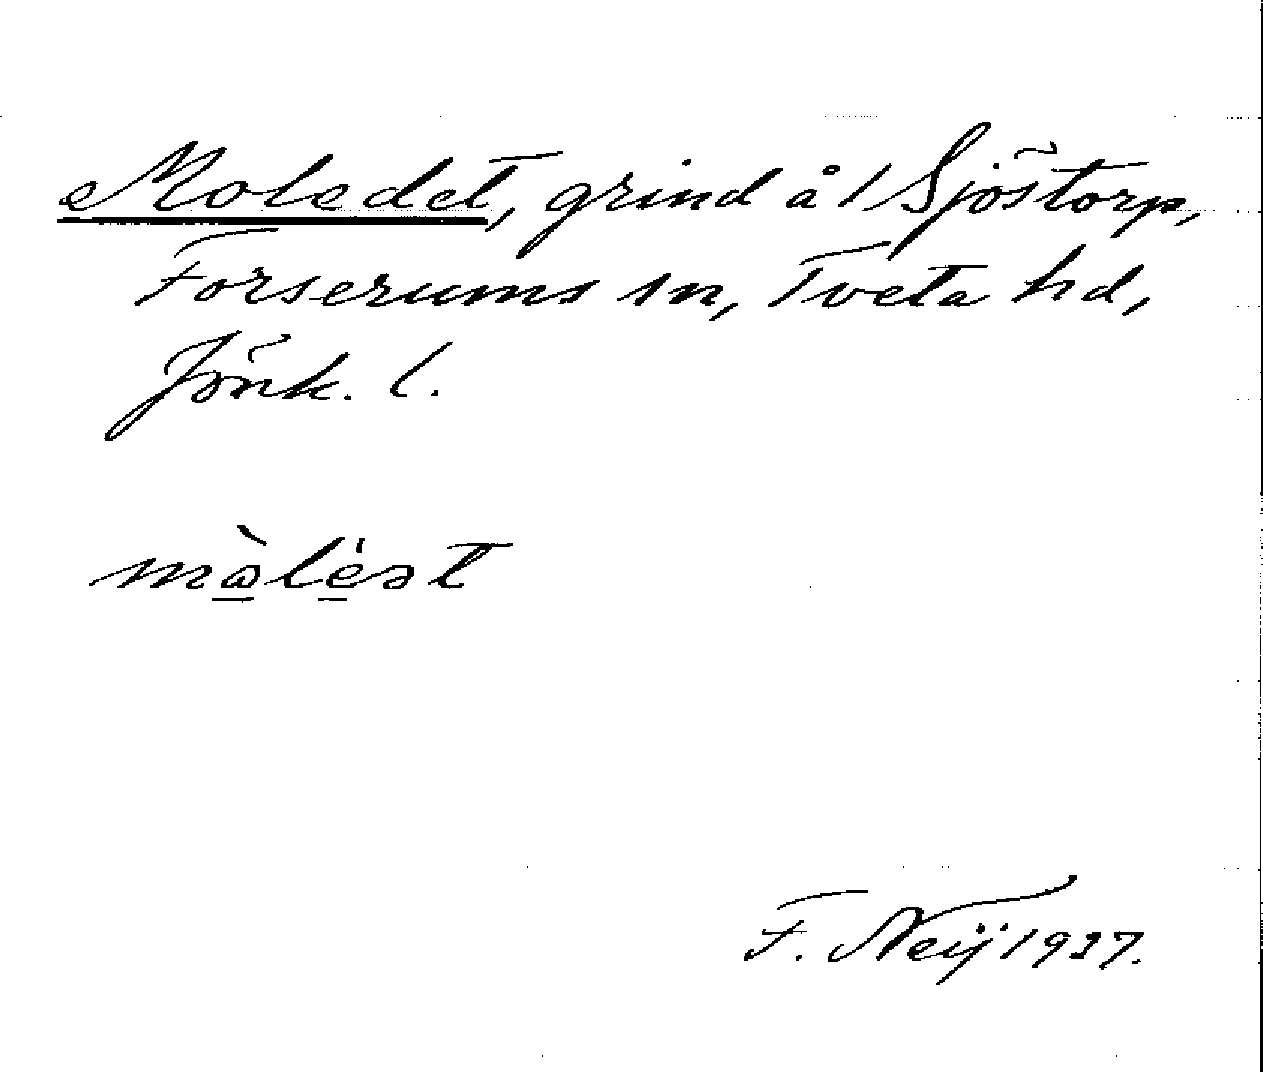 Moledet, grind å 1 Sjöstorp,
Forserums sn, Tveta hd,
Jönk. l.
F. Neij 1927.